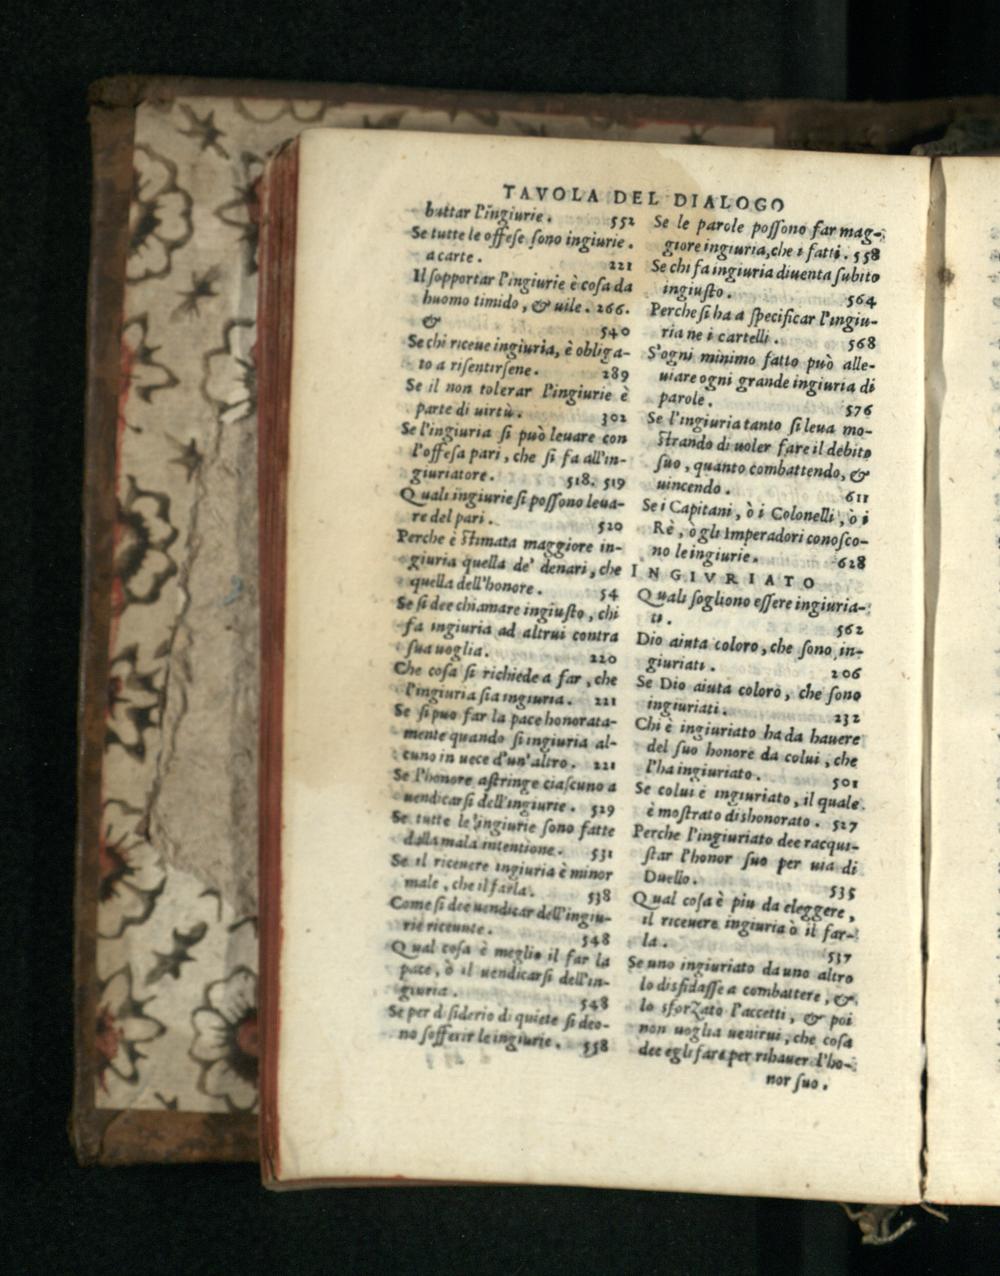 TAVOLA DEL DIALOGO
battar l'ingiurie. 552
Se tutte le offese sono ingiurie.
a carte. 221
Il sopportar l'ingiurie è cosa da
huomo timido, & uile. 266.
& 540
Se chi riceue ingiuria, è obliga-
to a risentirsene. 289
Se il non tolerar l'ingiurie è
parte di uirtù. 302
Se l'ingiuria si può leuare con
l'offesa pari, che si fa all'in-
giuriatore. 518. 519
Quali ingiurie si possono leua-
re del pari. 520
Perche è stimata maggiore in-
giuria quella de' denari, che
quella dell'honore. 54
Se si dee chiamare ingiusto, chi
fa ingiuria ad altrui contra
sua uoglia. 220
Che cosa si richiede a far, che
l'ingiuria sia ingiuria. 221
Se si puo far la pace honorata-
mente quando si ingiuria al-
cuno in uece d'un'altro. 221
Se l'honore astringe ciascuno a
uendicarsi dell'ingiurie. 529
Se tutte le ingiurie sono fatte
dalla mala intentione. 531
Se il riceuere ingiuria è minor
male, che il farla. 538
Come si dee uendicar dell'ingiu-
rie riceuute. 548
Qual cosa è meglio il far la
pace, ò il uendicarsi dell'in-
giuria. 548
Se per disiderio di quiete si deo-
no sofferir le ingiurie. 558
Se le parole possono far mag-
giore ingiuria, che i fatti. 558
Se chi fa ingiuria diuenta subito
ingiusto. 564
Perche si ha a specificar l'ingiu-
ria ne i cartelli. 568
S'ogni minimo fatto può alle-
uiare ogni grande ingiuria di
parole. 576
Se l'ingiuria tanto si leua mo-
strando di uoler fare il debito
suo, quanto combattendo, &
uincendo. 611
Se i Capitani, ò i Colonelli, ò i
Rè, ò gli Imperadori conosco-
no le ingiurie. 628
INGIVRIATO
Quali sogliono essere ingiuria-
ti. 562
Dio aiuta coloro, che sono in-
giuriati. 206
Se Dio aiuta coloro, che sono
ingiuriati. 232
Chi è ingiuriato ha da hauere
del suo honore da colui, che
l'ha ingiuriato. 501
Se colui è ingiuriato, il quale
è mostrato dishonorato. 527
Perche l'ingiuriato dee racqui-
star l'honor suo per uia di
Duello. 535
Qual cosa è piu da eleggere,
il riceuere ingiuria ò il far-
la. 537
Se uno ingiuriato da uno altro
lo disfidasse a combattere, &
lo sforzato l'accetti, & poi
non uoglia uenirui, che cosa
dee egli fare per rihauer l'ho-
nor suo.